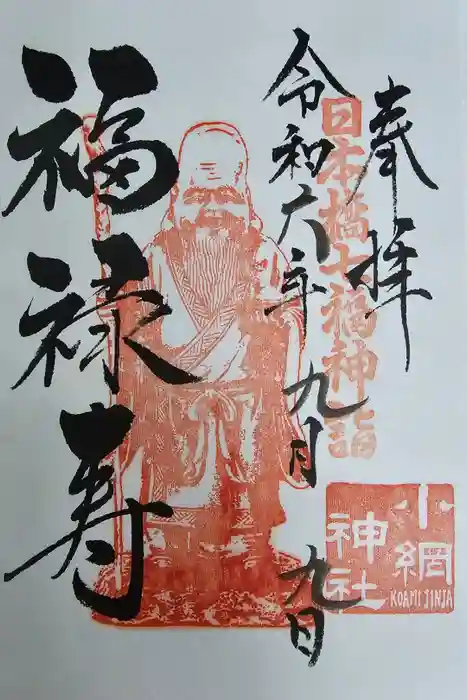 奉拝
日本橋七福神詣
令和六年九月九日
福禄寿
小網
神社
KOAMI JINJA